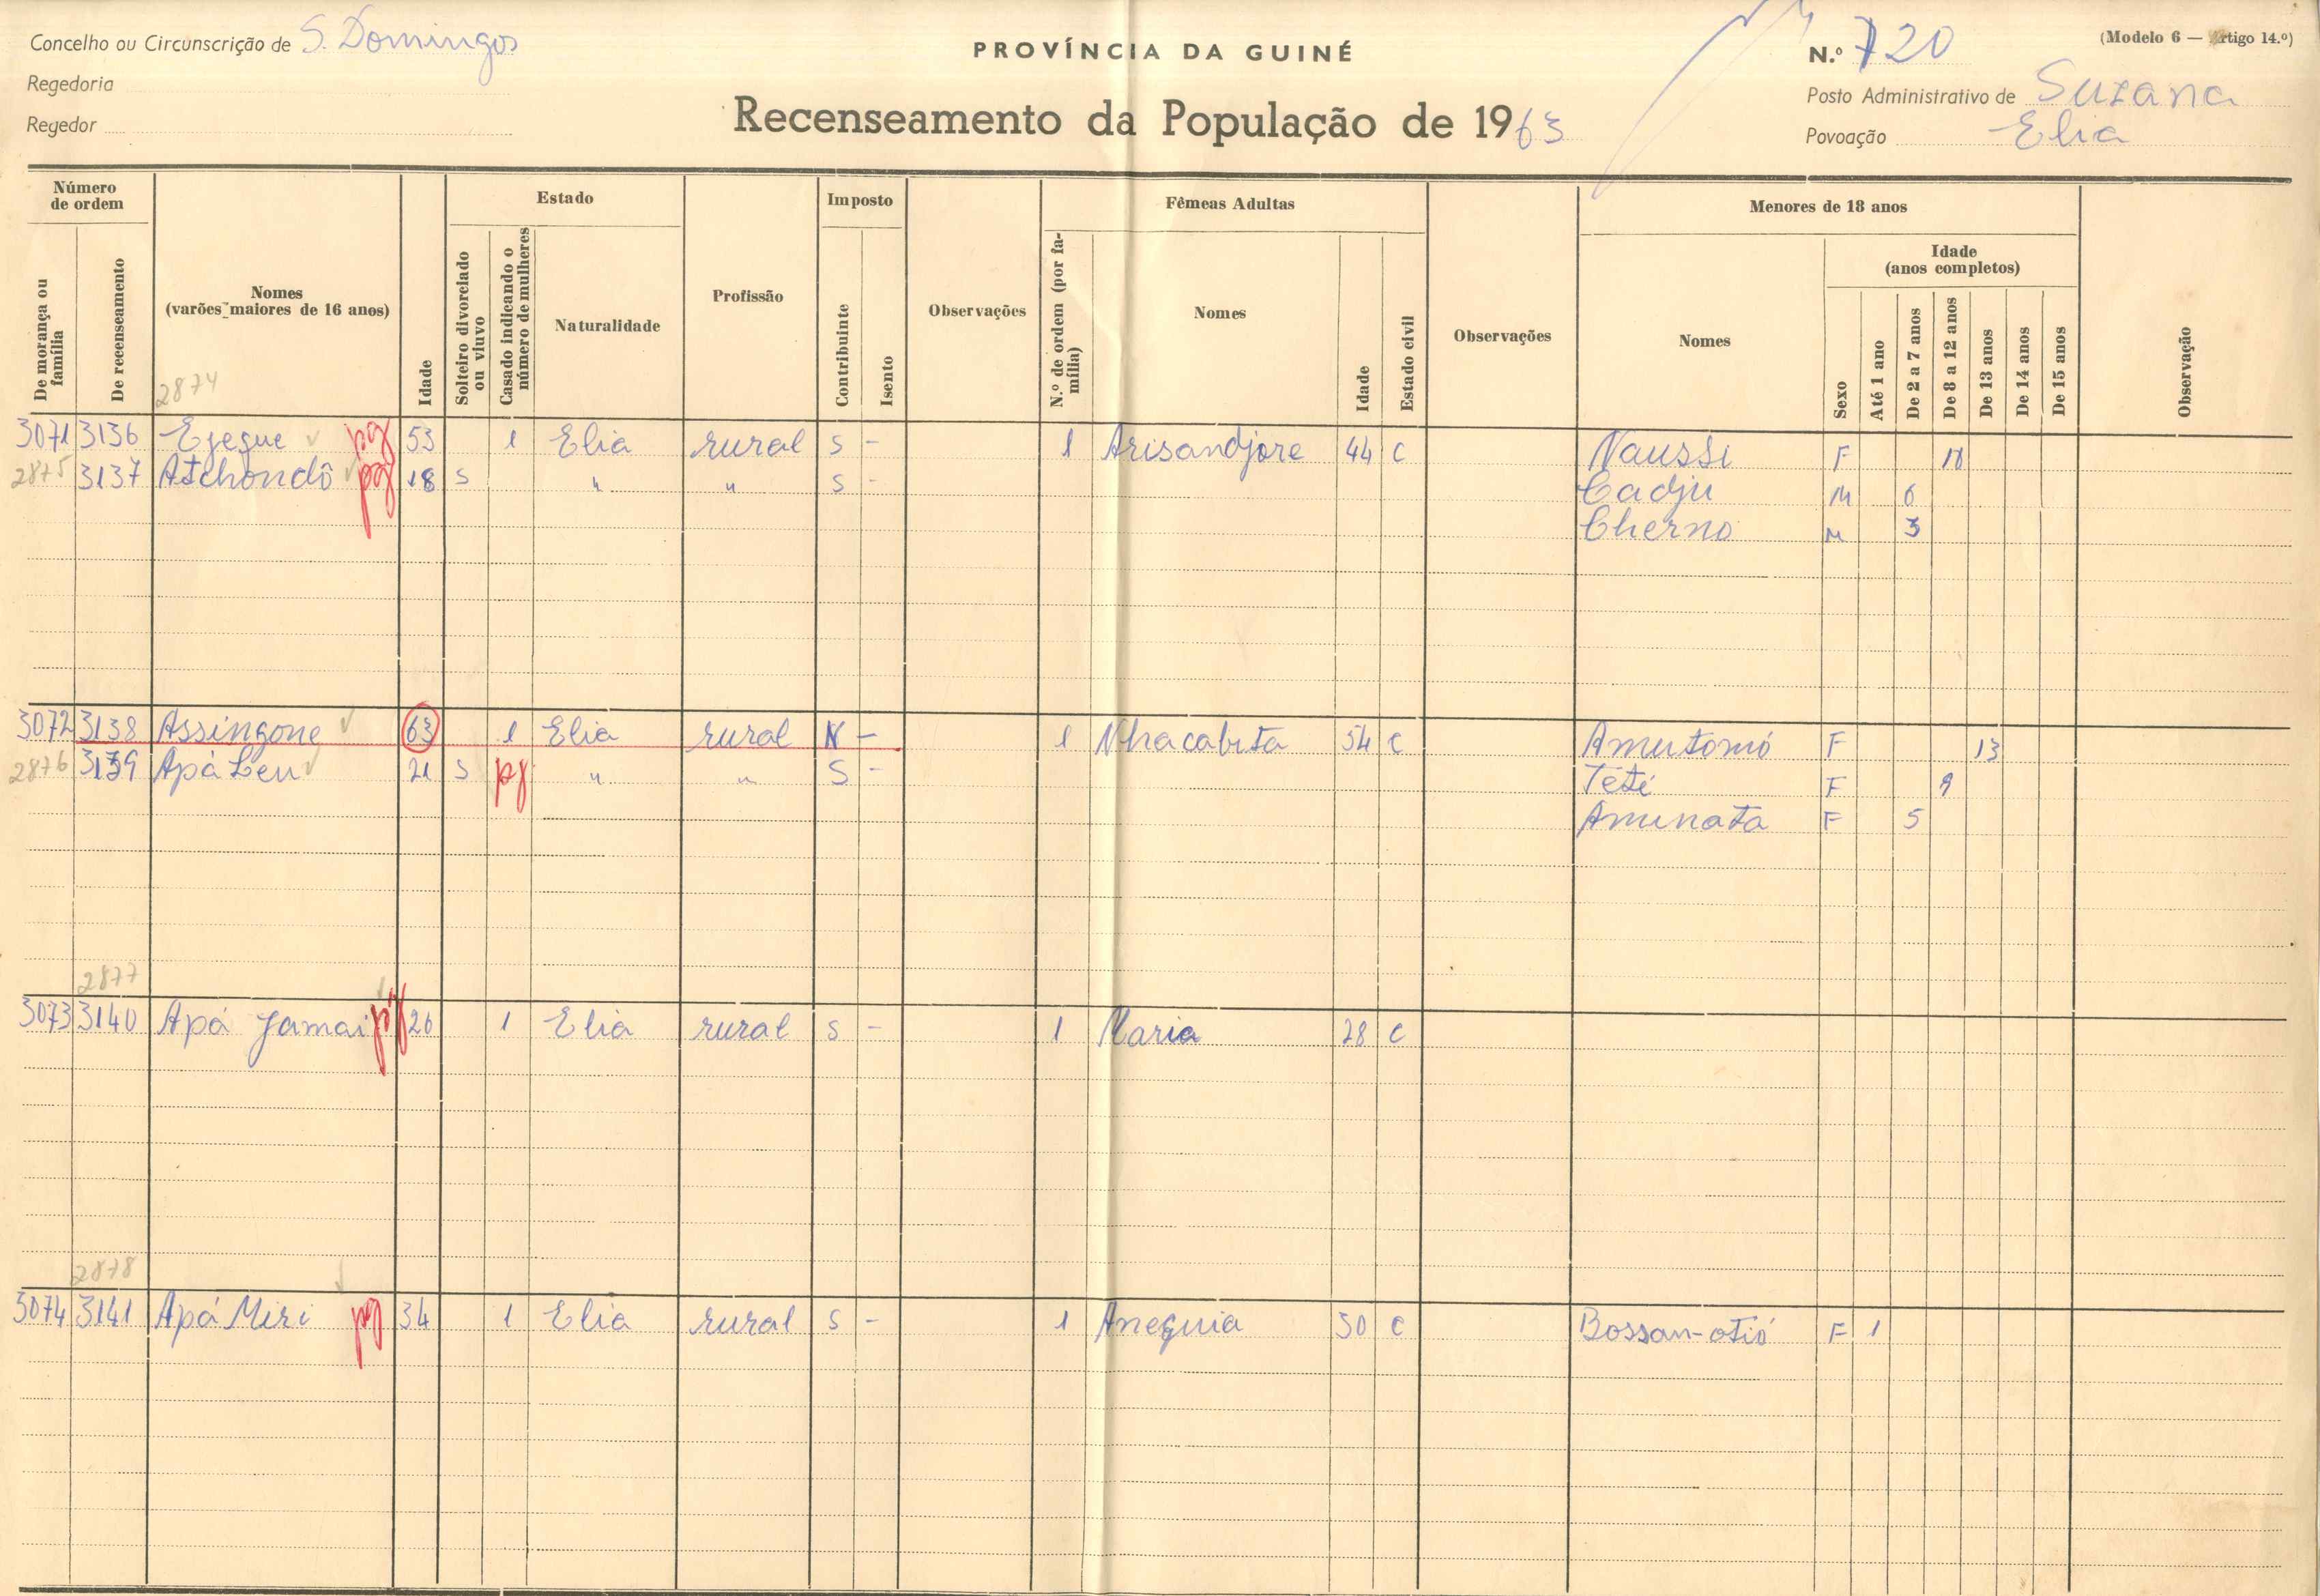 Concelho ou Circunscrição de S. Domingos
Regedoria
Regedor
PROVÍNCIA DA GUINÉ
Recenseamento da População de 1963
(Modelo 6 — Artigo 14.º)
N.º 720
Posto Administrativo de Suzana
Povoação Elia
Número de ordem
De morança ou família
De recenseamento
Nomes
(varões maiores de 16 anos)
Idade
Estado
Solteiro divorciado ou viuvo
Casado indicando o número de mulheres
Naturalidade
Profissão
Imposto
Contribuinte
Isento
Observações
Fêmeas Adultas
N.º de ordem (por família)
Nomes
Idade
Estado civil
Observações
Menores de 18 anos
Nomes
Sexo
Idade
(anos completos)
Até 1 ano
De 2 a 7 anos
De 8 a 12 anos
De 13 anos
De 14 anos
De 15 anos
Observação
2874
3071 3136 Ejegue pg 53 1 Elia rural S - 1 Arisandjore 44 C Naussi F
2875 3137 Atchondô pg 18 S " " S - Cadju M 6
Cherno M 3
3072 3138 Assingone 63 1 Elia rural N - 1 Nhacabita 54 C Amutomó F 13
2876 3139 Apá Leu 21 S pg " " S - Teté F 9
Aminata F 5
2877
3073 3140 Apá Jamai pg 26 1 Elia rural S - 1 Maria 28 C
2878
3074 3141 Apá Miri pg 34 1 Elia rural S - 1 Anequia 30 C Bossan-otió F 1